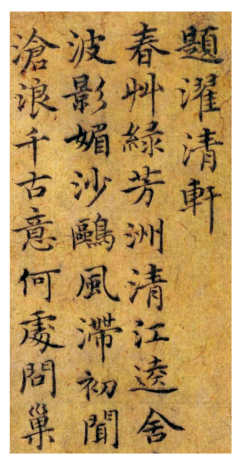 題濯清軒
春艸綠芳洲清江遶舍
波影媚沙鷗風滯初聞
滄浪千古意何處問巢